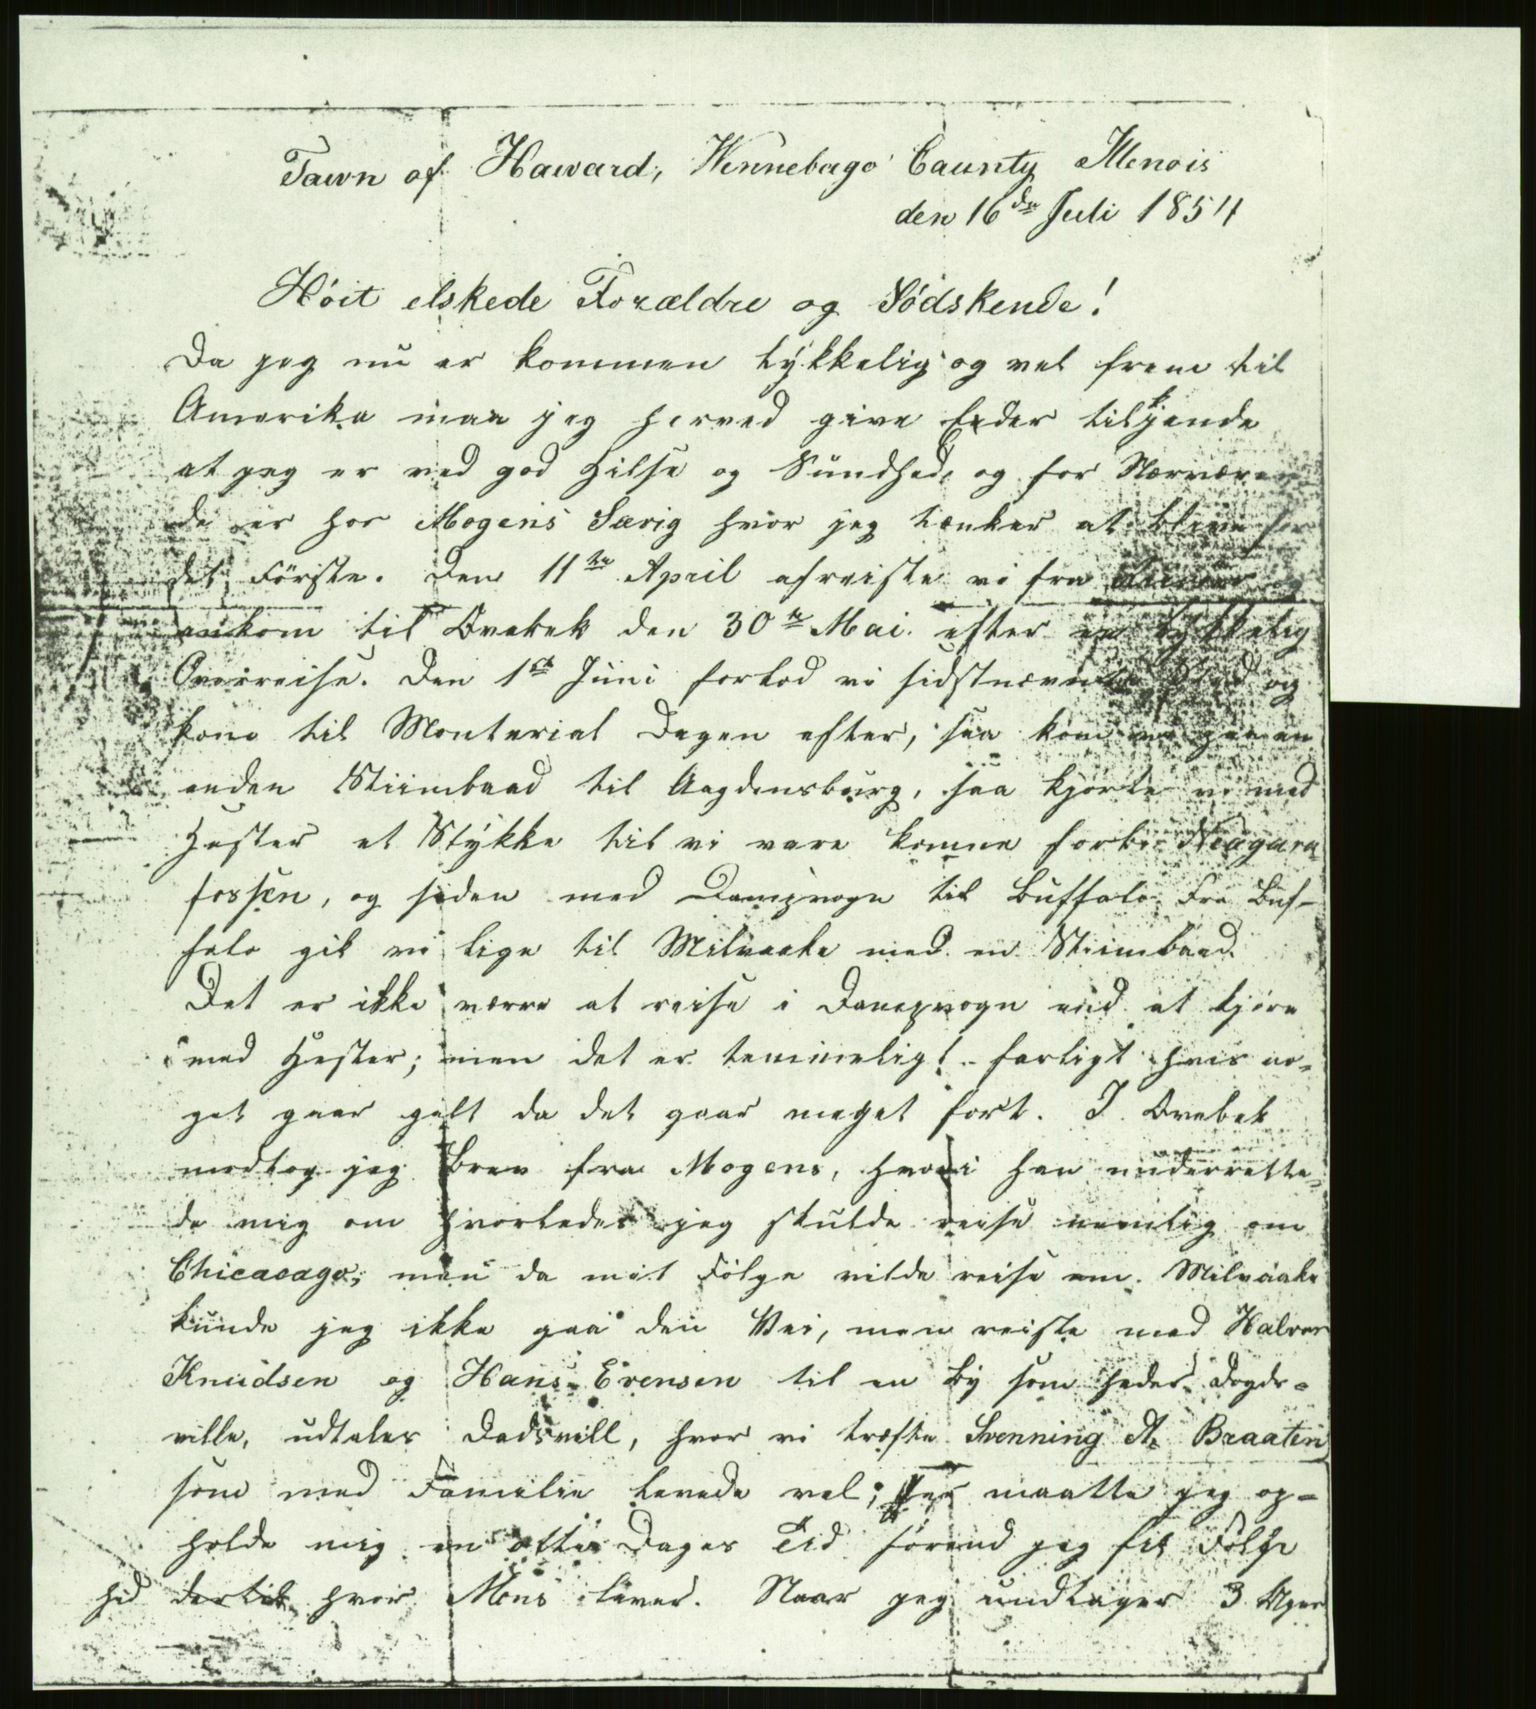 Tawn of Haward, Wennebago Caunty Illenois
den 16de Juli 1854
Höit elskede Forældre og Södskende!
Da jeg nu er kommen lykkelig og vel frem til
Amerika maa jeg herved give Eeder tilkjende
at jeg er ved god Hilse og Sundhed, og for Nærværen
de er hos Mogens Særig hvor jeg tænker at blive for
det Förste. Den 11te April afreiste vi fra
ankom til Qvebek den 30te Mai. efter en lykkelig
Overreise. Den 1ste Juni forlod vi sidstnævnte Sted og
kom til Monterial Dagen efter, saa kom vi paa en
anden Stiimbaad til Aagdensburg, saa kjörte vi med
Hester et Stykke til vi vare komne forbi Neagara
fossen, og siden med Dampvogn til Buffalo. Fra Buf-
falo gik vi lige til Milvaake med en Stiimbaad.
Det er ikke værre at reise i Dampvogn end at kjöre
med Hester; men det er temmeligt farligt hvis no-
get gaar galt da det gaar meget fort. I Qvebek
modtog jeg Brev fra Mogens, hvori han underrette-
de mig om hvorledes jeg skulde reise nemlig om
Chicacago, men da mit Fölge vilde reise om Milvaake
kunde jeg ikke gaa den Vei, men reiste med Halvor
Knudsen og Hans Evensen til en By som heder Dogds-
ville, udtales Dadsvill, hvor vi træfte Svenning A. Braaten
som med Familie levede vel; her maatte jeg op-
holde mig en otte Dages Tid förend jeg fik Fölge
hid dertil hvor Mons lever. Naar jeg undtager 3 Uger